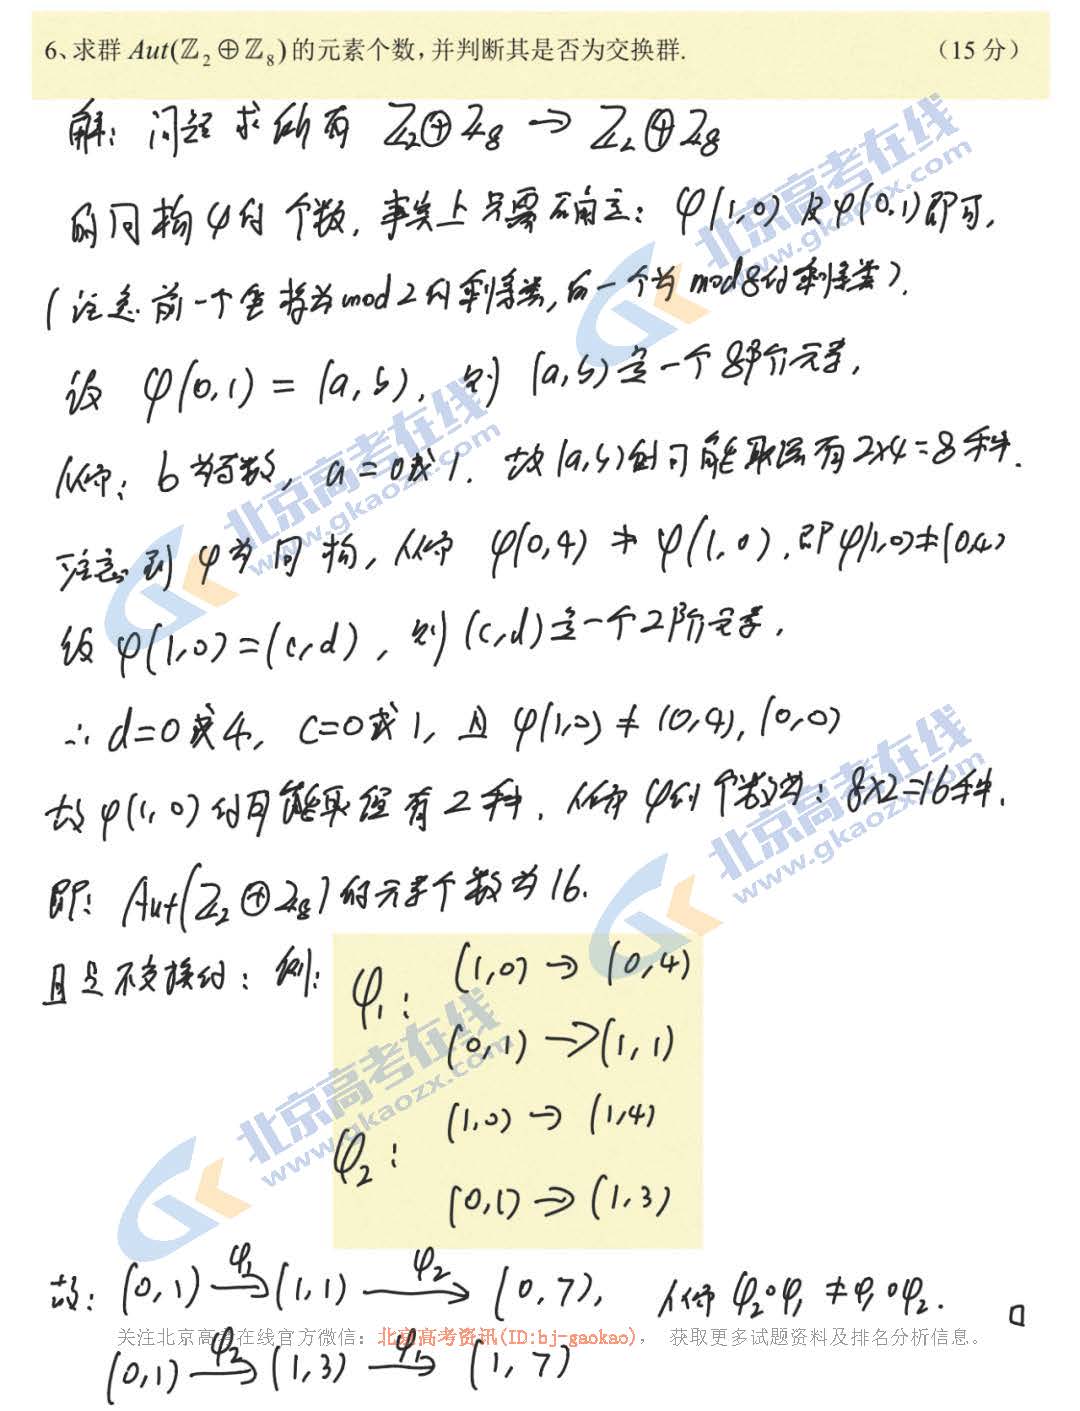 6、求群 Aut(ℤ₂⊕ℤ₈)的元素个数,并判断其是否为交换群. (15 分)
解: 问题求所有 Z₂⊕Z₈ → Z₂⊕Z₈
的同构φ的个数, 事实上只需确立: φ(1,0) 及 φ(0,1)即可,
(注意前一个坐标为mod2的剩余类, 后一个为mod8的剩余类).
设 φ(0,1) = (a,b), 则 (a,b)是一个8阶元素,
从而: b为奇数, a=0或1. 故(a,b)的可能取值有2×4=8种.
注意到φ为同构, 从而 φ(0,4) ≠ φ(1,0), 即φ(1,0)≠(0,4)
设 φ(1,0)=(c,d), 则(c,d)是一个2阶元素,
∴ d=0或4, c=0或1, 且 φ(1,0) ≠ (0,4), (0,0)
故φ(1,0)的可能取值有2种. 从而φ的个数为: 8×2=16种.
即: Aut(Z₂⊕Z₈)的元素个数为16.
且是不交换的: 例:
φ₁: (1,0) → (0,4)
(0,1) → (1,1)
φ₂: (1,0) → (1,4)
(0,1) → (1,3)
故: (0,1) —φ₁→ (1,1) —φ₂→ (0,7), 从而 φ₂∘φ₁ ≠ φ₁∘φ₂. □
关注北京高考在线官方微信：北京高考资讯(ID:bj-gaokao)， 获取更多试题资料及排名分析信息。
(0,1) —φ₂→ (1,3) —φ₁→ (1,7)
北京高考在线
www.gkaozx.com
北京高考在线
www.gkaozx.com
北京高考在线
www.gkaozx.com
北京高考在线
www.gkaozx.com